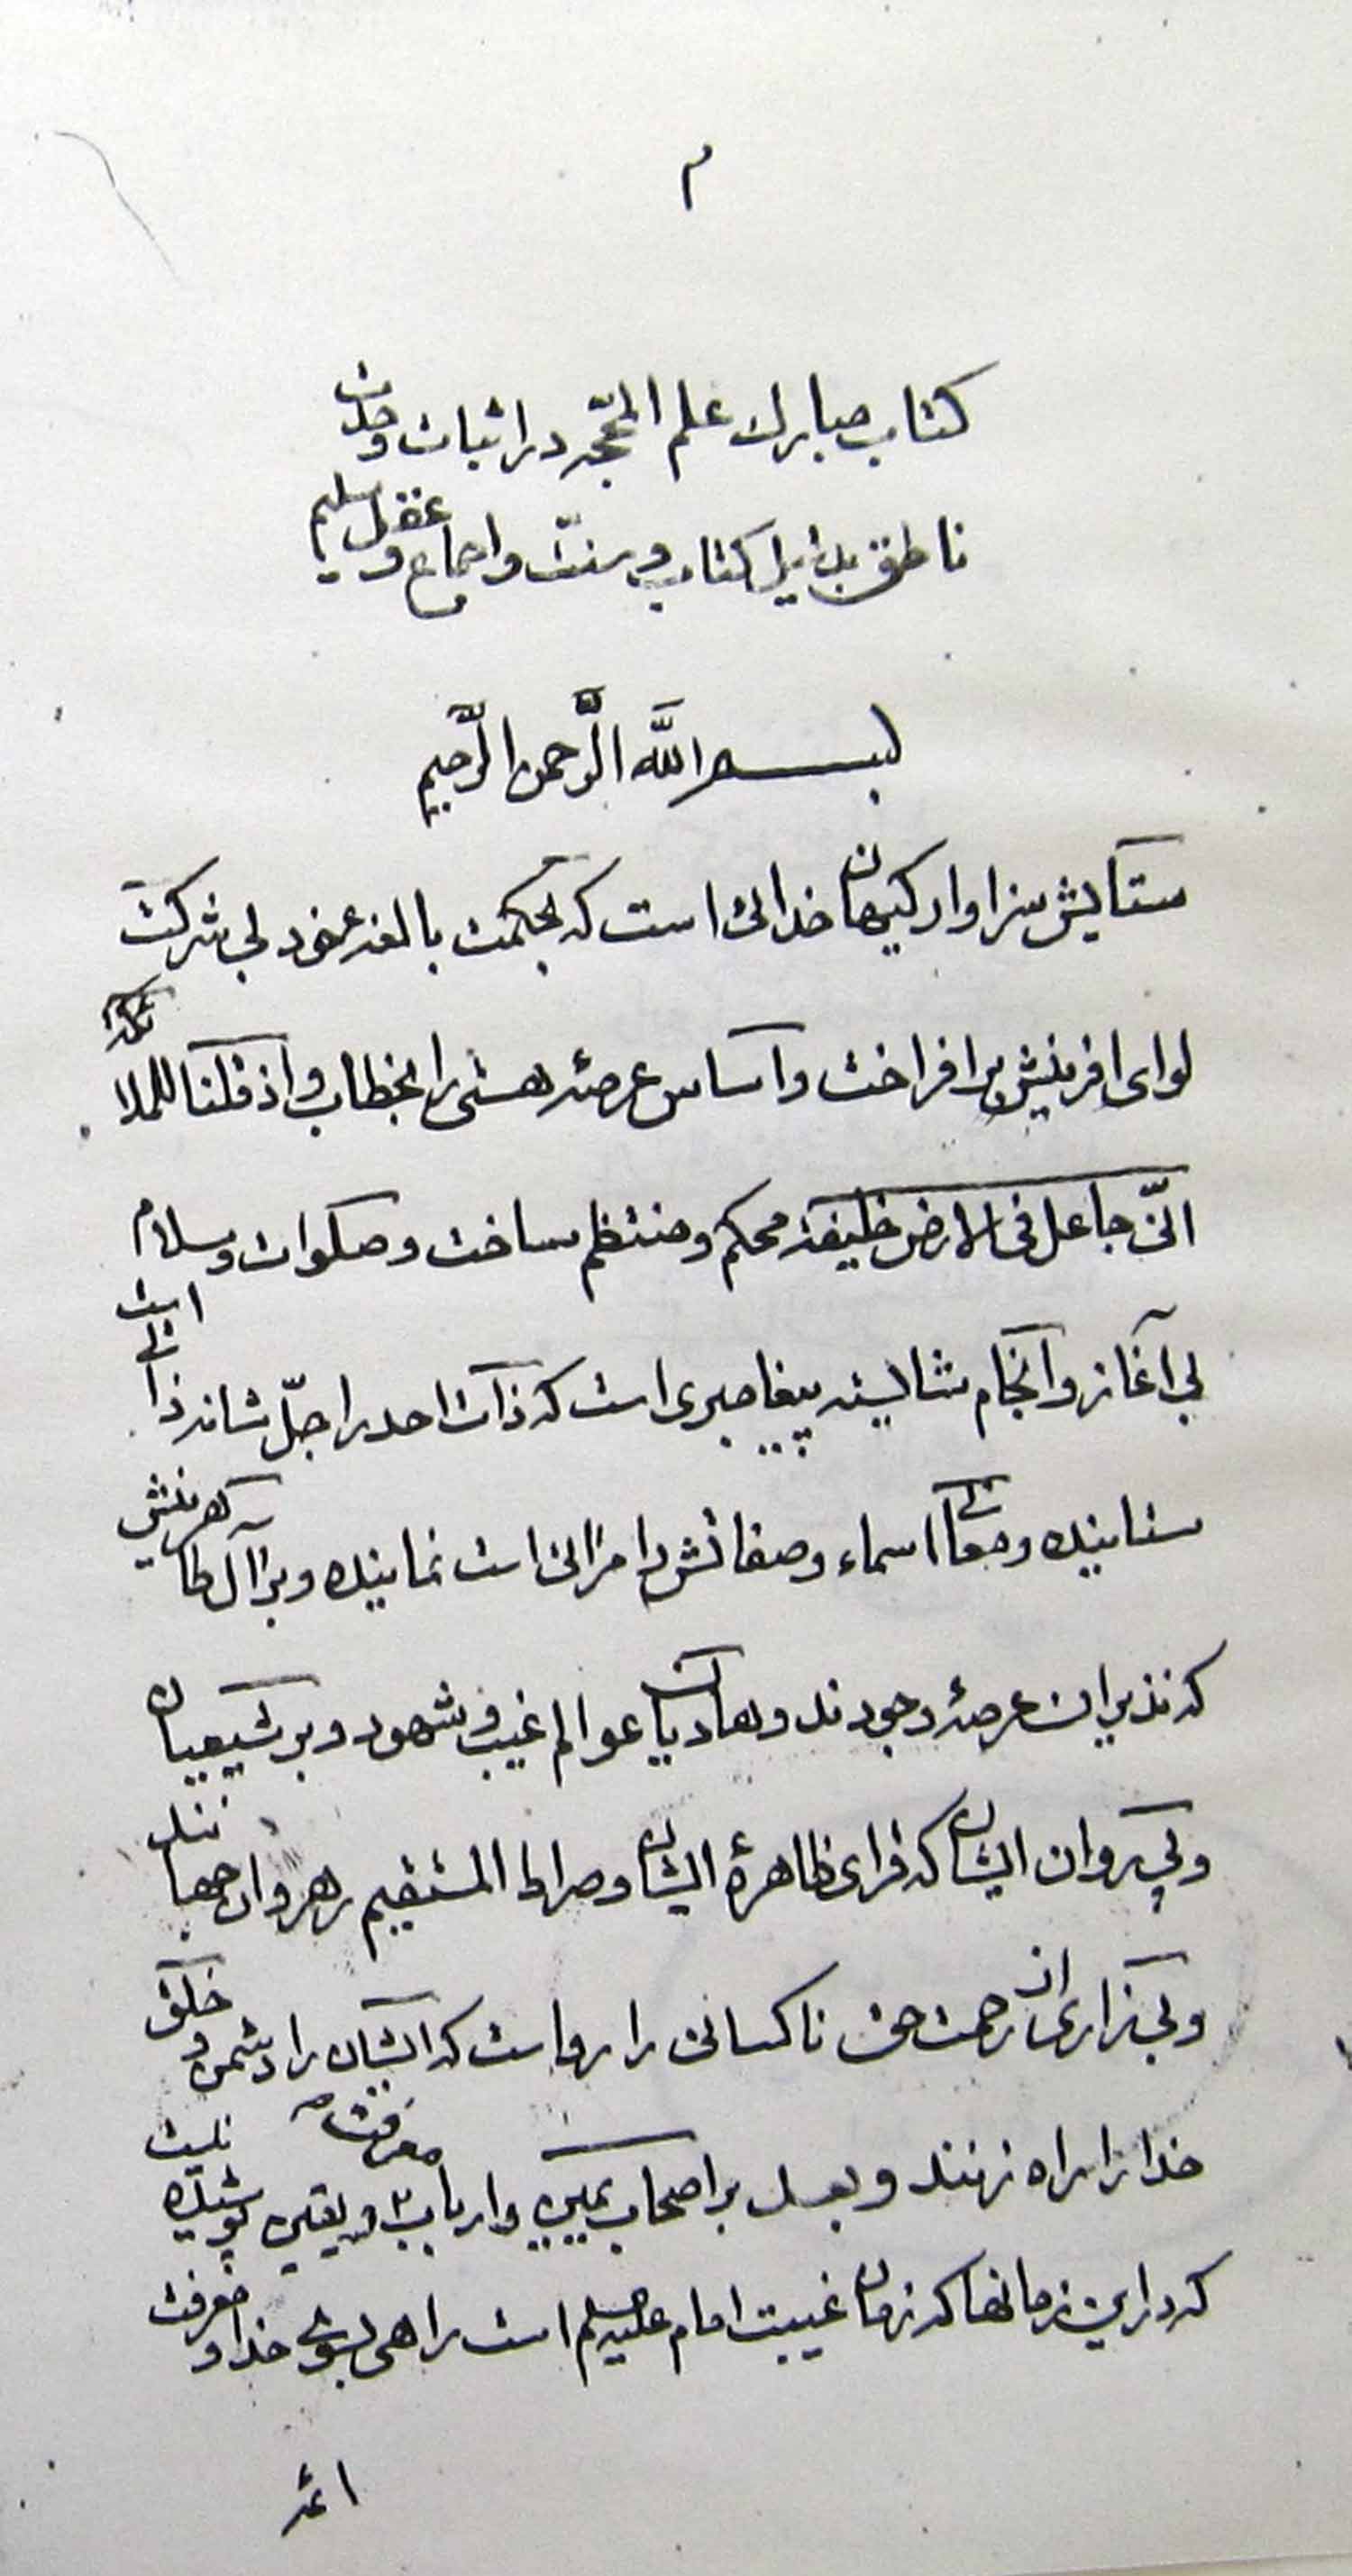 ۲
کتاب مبارك علم المحجّه در اثبات وحدت
ناطق بدلیل کتاب و سنّت و اجماع و عقل سلیم
بسم اللّه الرّحمن الرّحیم
ستایش سزاوار کیهان خدائی است که بحکمت بالغه خود بی شرکت
لوای افرینش برافراخت و اساس عرصهٔ هستی را بخطاب و اذ قلنا للملائکة
انّی جاعل فی الارض خلیفة محکم و منتظم ساخت و صلوات و سلام
بی آغاز و انجام شایسته پیغامبری است که ذات احد را جلّ شانه ذاتی است
ستاینده و معانی اسماء و صفاتش را مراتی است نماینده و بر آل طاهرینش
که نذیران عرصهٔ وجودند و هادیان عوالم غیب و شهود و بر شیعیان
و پیروان ایشان که قرای ظاهرهٔ ایشان و صراط المستقیم رهروان جهانند
و بیزاری از رحمت حق ناکسانی را رواست که ایشان را دشمن و خلق
خدا را راه زنند و بعد بر اصحاب یمین و ارباب معرفت و یقین پوشیده نیست
که در این زمانها که زمان غیبت امام علیه السلم است راهی بسوی خدا و معرفت
ائمه